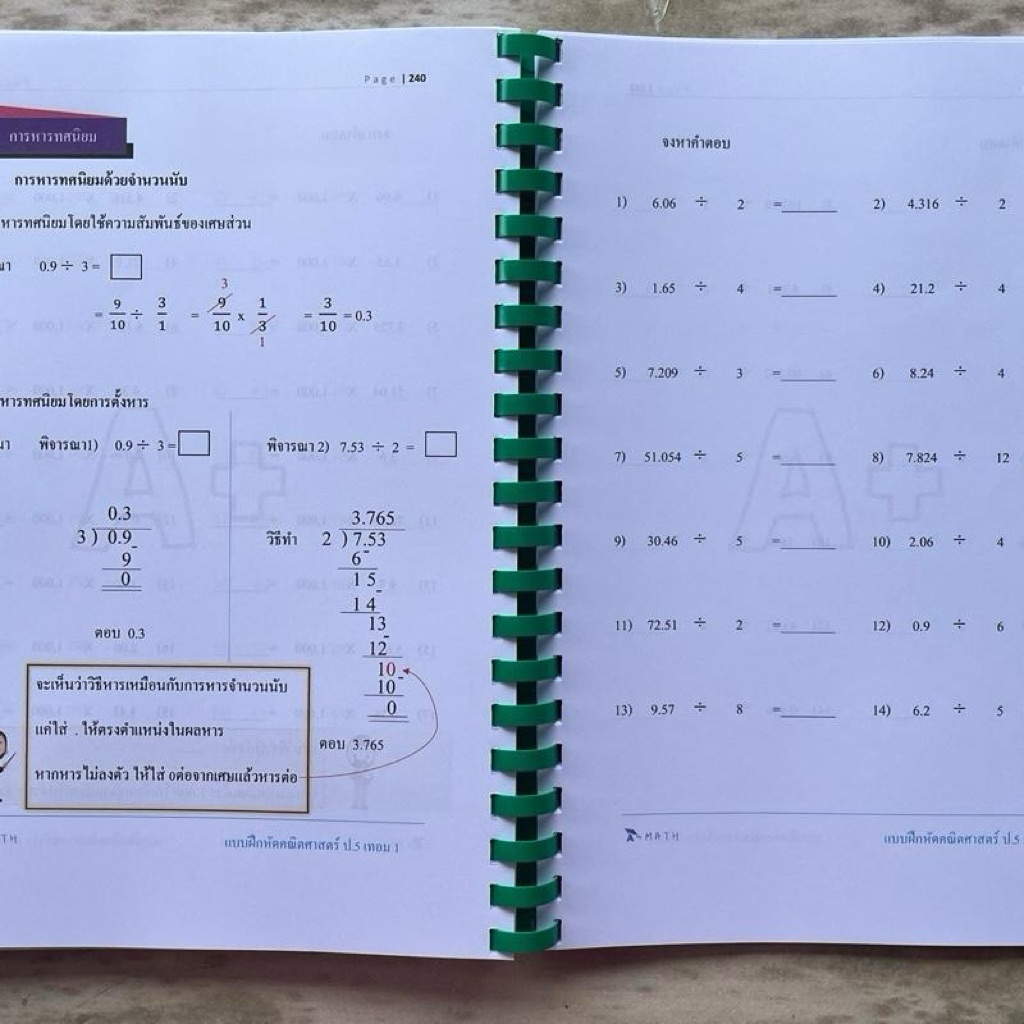 Page | 240
การหารทศนิยม
การหารทศนิยมด้วยจำนวนนับ
หารทศนิยมโดยใช้ความสัมพันธ์ของเศษส่วน
0.9 ÷ 3 =
3
= 9/10 ÷ 3/1 = 9/10 x 1/3 = 3/10 = 0.3
1
หารทศนิยมโดยการตั้งหาร
พิจารณา1) 0.9 ÷ 3 =
0.3
3 ) 0.9
9
0
ตอบ 0.3
พิจารณา 2) 7.53 ÷ 2 =
3.765
วิธีทำ 2 ) 7.53
6
15
14
13
12
10
10
0
ตอบ 3.765
จะเห็นว่าวิธีหารเหมือนกับการหารจำนวนนับ
แค่ใส่ . ให้ตรงตำแหน่งในผลหาร
หากหารไม่ลงตัว ให้ใส่ 0ต่อจากเศษแล้วหารต่อ
แบบฝึกหัดคณิตศาสตร์ ป.5 เทอม 1
จงหาคำตอบ
1) 6.06 ÷ 2 =______ 2) 4.316 ÷ 2
3) 1.65 ÷ 4 =______ 4) 21.2 ÷ 4
5) 7.209 ÷ 3 =______ 6) 8.24 ÷ 4
7) 51.054 ÷ 5 =______ 8) 7.824 ÷ 12
9) 30.46 ÷ 5 =______ 10) 2.06 ÷ 4
11) 72.51 ÷ 2 =______ 12) 0.9 ÷ 6
13) 9.57 ÷ 8 =______ 14) 6.2 ÷ 5
A+ MATH
แบบฝึกหัดคณิตศาสตร์ ป.5